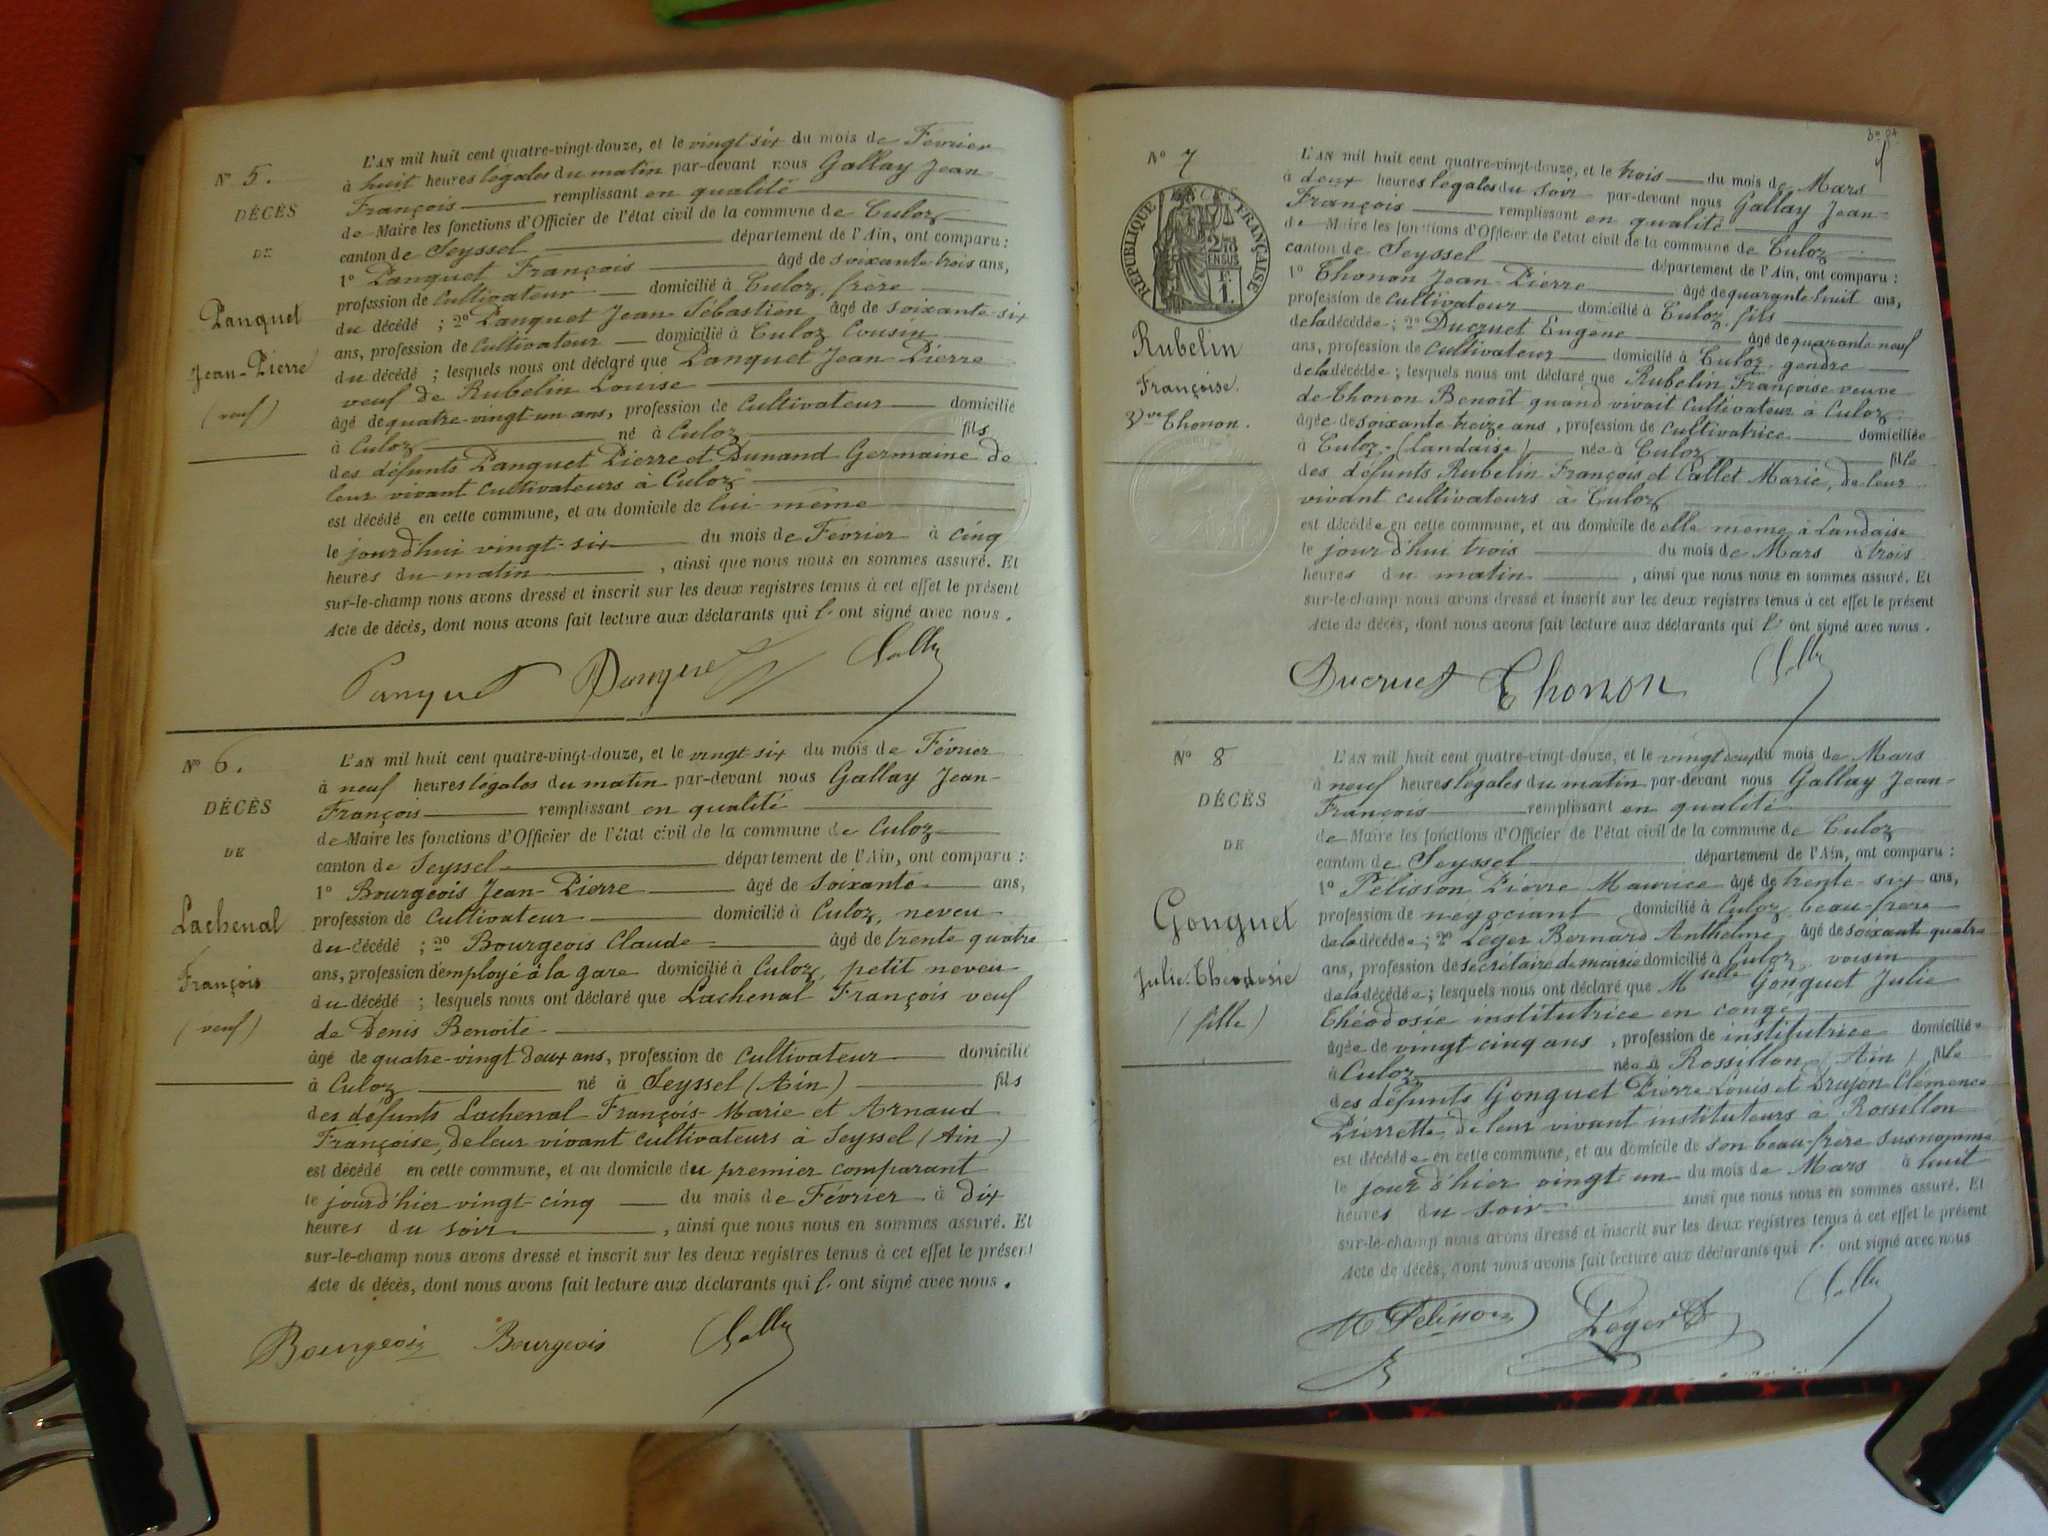 N° 5.
DÉCÈS
DE
Panquet
Jean-Pierre
(veuf)
L'AN mil huit cent quatre-vingt-douze, et le vingt six du mois de Février
à huit heures légales du matin par-devant nous Gallay Jean-
François remplissant en qualité
de Maire les fonctions d'Officier de l'état civil de la commune de Culoz
canton de Seyssel département de l'Ain, ont comparu :
1° Panquet François âgé de soixante trois ans,
profession de Cultivateur domicilié à Culoz, frère
du décédé ; 2° Panquet Jean-Sébastien âgé de soixante six
ans, profession de Cultivateur domicilié à Culoz Cousin
du décédé ; lesquels nous ont déclaré que Panquet Jean-Pierre
veuf de Rubelin Louise
âgé de quatre-vingt un ans, profession de Cultivateur domicilié
à Culoz né à Culoz fils
des défunts Panquet Pierre et Dunand Germaine de
leur vivant cultivateurs à Culoz
est décédé en cette commune, et au domicile de lui-même
le jourd'hui vingt-six du mois de Février à cinq
heures du matin , ainsi que nous nous en sommes assuré. Et
sur-le-champ nous avons dressé et inscrit sur les deux registres tenus à cet effet le présent
Acte de décès, dont nous avons fait lecture aux déclarants qui l' ont signé avec nous.
Panquet Panquet Gallay
N° 6.
DÉCÈS
DE
Lachenal
François
(veuf)
L'AN mil huit cent quatre-vingt-douze, et le vingt-six du mois de Février
à neuf heures légales du matin par-devant nous Gallay Jean-
François remplissant en qualité
de Maire les fonctions d'Officier de l'état civil de la commune de Culoz
canton de Seyssel département de l'Ain, ont comparu :
1° Bourgeois Jean-Pierre âgé de soixante ans,
profession de Cultivateur domicilié à Culoz, neveu
du décédé ; 2° Bourgeois Claude âgé de trente quatre
ans, profession d'employé à la gare domicilié à Culoz, petit neveu
du décédé ; lesquels nous ont déclaré que Lachenal François veuf
de Denis Benoite
âgé de quatre-vingt deux ans, profession de Cultivateur domicilié
à Culoz né à Seyssel (Ain) fils
des défunts Lachenal François-Marie et Arnaud
Françoise, de leur vivant cultivateurs à Seyssel (Ain)
est décédé en cette commune, et au domicile du premier comparant
le jourd'hier vingt-cinq du mois de Février à dix
heures du soir , ainsi que nous nous en sommes assuré. Et
sur-le-champ nous avons dressé et inscrit sur les deux registres tenus à cet effet le présent
Acte de décès, dont nous avons fait lecture aux déclarants qui l' ont signé avec nous.
Bourgeois Bourgeois Gallay
N° 7
RÉPUBLIQUE FRANÇAISE
Rubelin
Françoise.
Vve Thonon.
L'AN mil huit cent quatre-vingt-douze, et le trois du mois de Mars
à deux heures légales du soir par-devant nous Gallay Jean-
François remplissant en qualité
de Maire les fonctions d'Officier de l'état civil de la commune de Culoz
canton de Seyssel département de l'Ain, ont comparu :
1° Thonon Jean-Pierre âgé de quarante-huit ans,
profession de cultivateur domicilié à Culoz, fils
de la décédée ; 2° Ducruet Eugène âgé de quarante neuf
ans, profession de cultivateur domicilié à Culoz, gendre
de la décédée ; lesquels nous ont déclaré que Rubelin Françoise veuve
de Thonon Benoît quand vivait Cultivateur à Culoz
âgée de soixante treize ans, profession de cultivatrice domiciliée
à Culoz-(Landaise) née à Culoz fille
des défunts Rubelin François et Callet Marie, de leur
vivant cultivateurs à Culoz
est décédée en cette commune, et au domicile de elle même, à Landaise
le jourd'hui trois du mois de Mars à trois
heures du matin , ainsi que nous nous en sommes assuré. Et
sur-le-champ nous avons dressé et inscrit sur les deux registres tenus à cet effet le présent
Acte de décès, dont nous avons fait lecture aux déclarants qui l' ont signé avec nous.
Ducruet Thonon Gallay
N° 8
DÉCÈS
DE
Gonguet
Julie-Théodosie
(fille)
L'AN mil huit cent quatre-vingt-douze, et le vingt deux du mois de Mars
à neuf heures légales du matin par-devant nous Gallay Jean-
François remplissant en qualité
de Maire les fonctions d'Officier de l'état civil de la commune de Culoz
canton de Seyssel département de l'Ain, ont comparu :
1° Pélisson Pierre Maurice âgé de trente-six ans,
profession de négociant domicilié à Culoz, beau-frère
de la décédée ; 2° Leger Bernard Anthelme, âgé de soixante quatre
ans, profession de secrétaire de mairie domicilié à Culoz, voisin
de la décédée ; lesquels nous ont déclaré que Mselle Gonguet Julie
Théodosie institutrice en congé
âgée de vingt cinq ans , profession de institutrice domiciliée
à Culoz née à Rossillon (Ain) fille
des défunts Gonguet Pierre Louis et Drujon Clémence
Pierrette, de leur vivant instituteurs à Rossillon
est décédée en cette commune, et au domicile de son beau-frère susnommé
le jour d'hier vingt-un du mois de Mars à huit
heures du soir ainsi que nous nous en sommes assuré. Et
sur-le-champ nous avons dressé et inscrit sur les deux registres tenus à cet effet le présent
Acte de décès, dont nous avons fait lecture aux déclarants qui l' ont signé avec nous
M Pelisson Leger Gallay